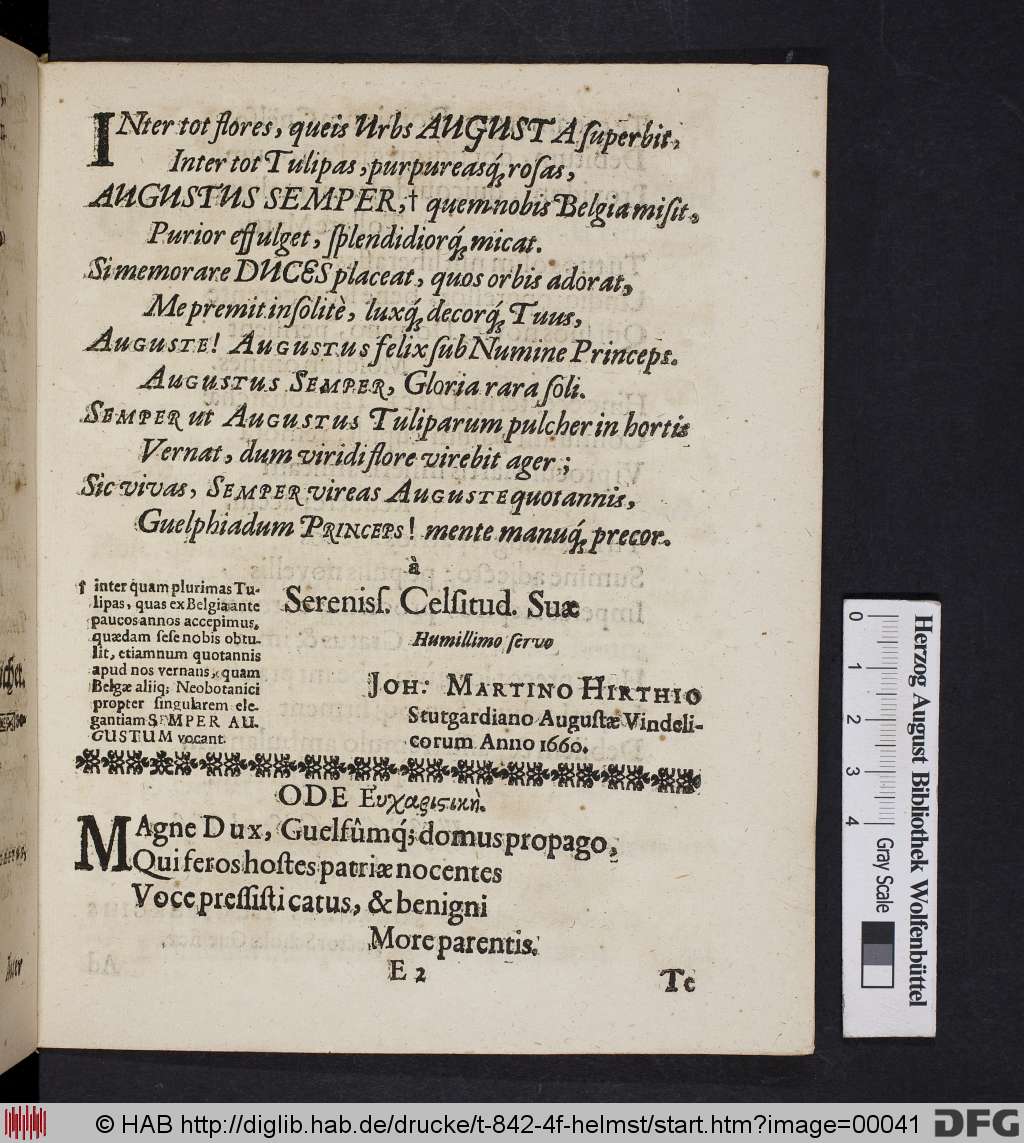 INter tot flores, queis Urbs AUGUSTA ſuperbit,
Inter tot Tulipas, purpureasq́; roſas,
AUGUSTUS SEMPER,† quem nobis Belgia miſit,
Purior effulget, ſplendidiorq́; micat.
Si memorare DUCES placeat, quos orbis adorat,
Me premit inſolitè, luxq́; decorq́; Tuus,
AUGUSTE! AUGUSTUS felix ſub Numine Princeps.
AUGUSTUS SEMPER, Gloria rara ſoli.
SEMPER ut AUGUSTUS Tuliparum pulcher in hortis
Vernat, dum viridi flore virebit ager;
Sic vivas, SEMPER vireas AUGUSTE quotannis,
Guelphiadum PRINCEPS! mente manuq́; precor.
à
Sereniſſ. Celſitud. Suæ
Humillimo ſervo
JOH: MARTINO HIRTHIO
Stutgardiano Auguſtæ Vindeli-
corum Anno 1660.
† inter quam plurimas Tu-
lipas, quas ex Belgia ante
paucos annos accepimus,
quædam ſeſe nobis obtu-
lit, etiamnum quotannis
apud nos vernans, quam
Belgæ aliiq; Neobotanici
propter ſingularem ele-
gantiam SEMPER AU-
GUSTUM vocant.
ODE Ευχαριϛικὴ.
MAgne Dux, Guelfûmq́; domus propago,
Qui feros hoſtes patriæ nocentes
Voce preſſiſti catus, & benigni
More parentis.
E 2
Te
0 1 2 3 4
Gray Scale
Herzog August Bibliothek Wolfenbüttel
© HAB http://diglib.hab.de/drucke/t-842-4f-helmst/start.htm?image=00041
DFG